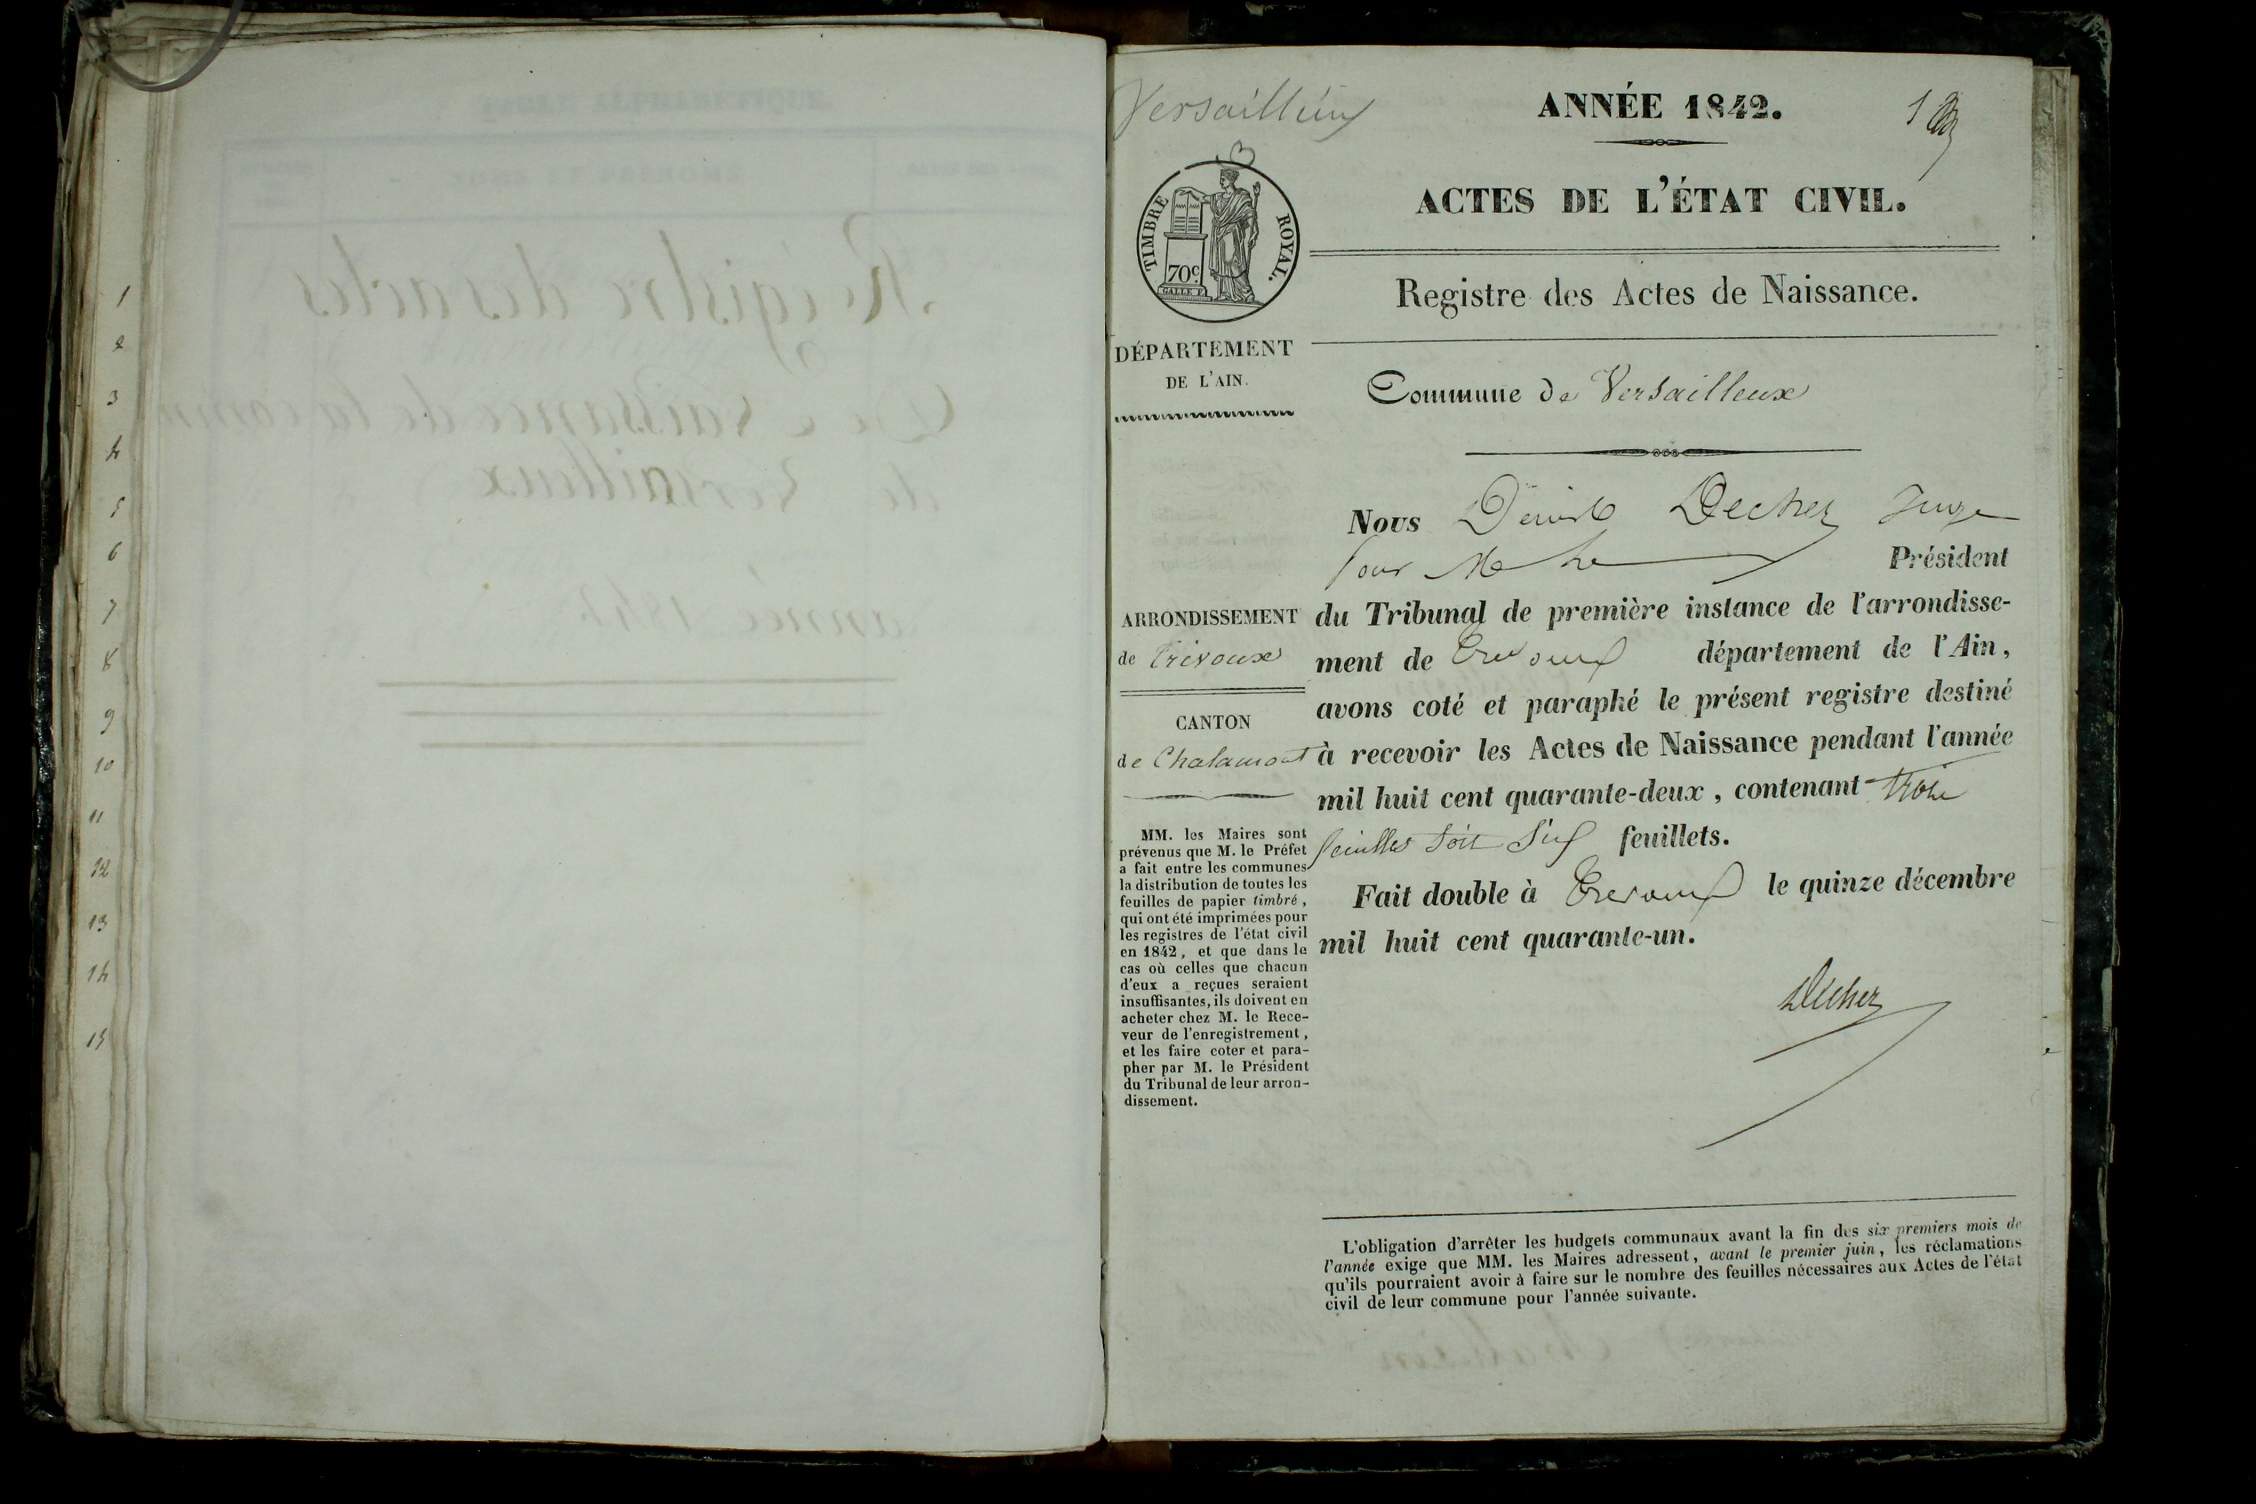 1
2
3
4
5
6
7
8
9
10
11
12
13
14
15
Registre des actes
De Naissance de la comm
de Versailleux
année 1842
Versailleux
ANNÉE 1842.
1
ACTES DE L'ÉTAT CIVIL.
TIMBRE ROYAL.
70c.
GALLE F.
Registre des Actes de Naissance.
DÉPARTEMENT
DE L'AIN.
Commune de Versailleux
Nous Decher Juge
pour Président
du Tribunal de première instance de l'arrondisse-
ment de Trevoux département de l'Ain,
avons coté et paraphé le présent registre destiné
à recevoir les Actes de Naissance pendant l'année
mil huit cent quarante-deux, contenant trois
feuilles soit Six feuillets.
Fait double à Trevoux le quinze décembre
mil huit cent quarante-un.
Decher
ARRONDISSEMENT
de Trévoux
CANTON
de Chalamont
MM. les Maires sont
prévenus que M. le Préfet
a fait entre les communes
la distribution de toutes les
feuilles de papier timbré,
qui ont été imprimées pour
les registres de l'état civil
en 1842, et que dans le
cas où celles que chacun
d'eux a reçues seraient
insuffisantes, ils doivent en
acheter chez M. le Rece-
veur de l'enregistrement,
et les faire coter et para-
pher par M. le Président
du Tribunal de leur arron-
dissement.
L'obligation d'arrêter les budgets communaux avant la fin des six premiers mois de
l'année exige que MM. les Maires adressent, avant le premier juin, les réclamations
qu'ils pourraient avoir à faire sur le nombre des feuilles nécessaires aux Actes de l'état
civil de leur commune pour l'année suivante.